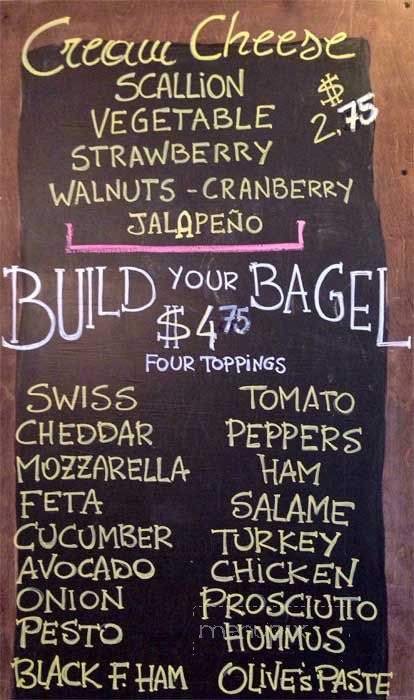 Cream Cheese
SCALLION
$ 2,75
VEGETABLE
STRAWBERRY
WALNUTS - CRANBERRY
JALAPEÑO
BUILD YOUR BAGEL
$4 75
FOUR TOPPINGS
SWISS
CHEDDAR
MOZZARELLA
FETA
CUCUMBER
AVOCADO
ONION
PESTO
BLACK F. HAM
TOMATO
PEPPERS
HAM
SALAME
TURKEY
CHICKEN
PROSCIUTTO
HUMMUS
OLIVE's PASTE